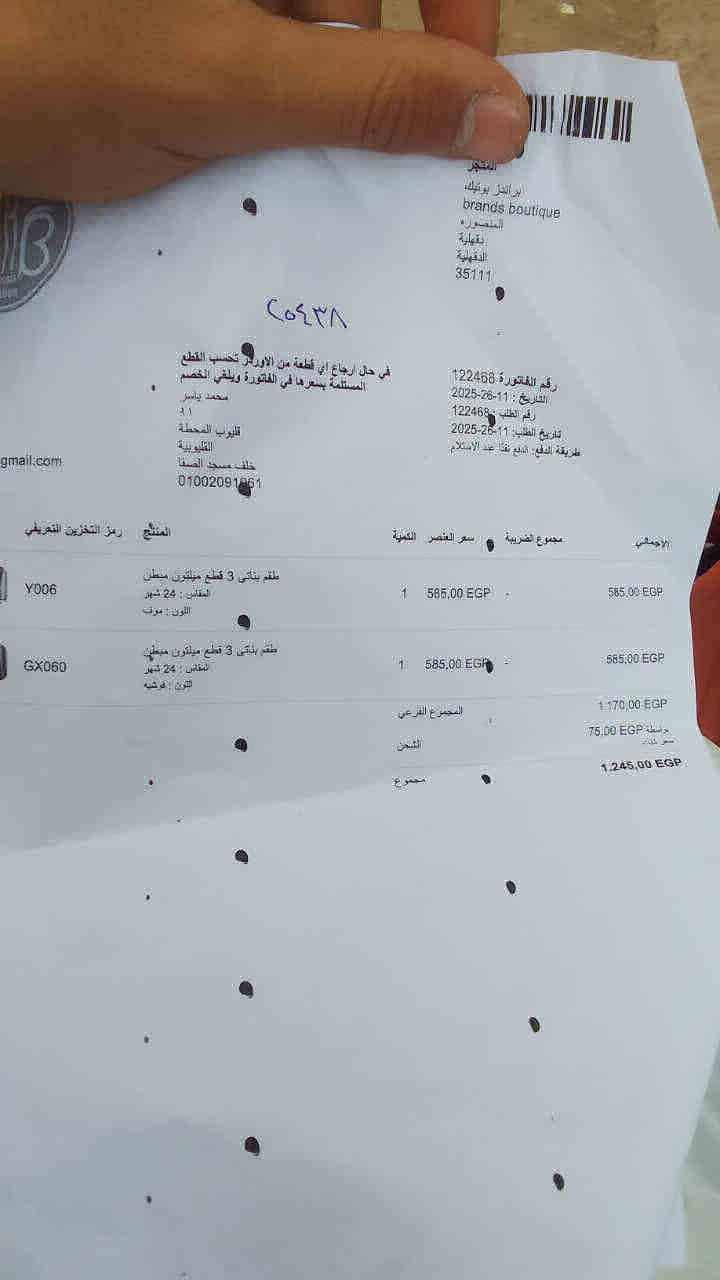 المتجر
براندز بوتيك
brands boutique
المنصوره
دقهلية
الدقهلية
35111
٢٥٤٣٨
في حال ارجاع اي قطعة من الاوردر تحسب القطع
المستلمة بسعرها في الفاتورة ويلغي الخصم
محمد ياسر
١١
قليوب المحطة
القليوبية
خلف مسجد الصفا
رقم الفاتورة: 122468
التاريخ : 11-26-2025
رقم الطلب: 122468
تاريخ الطلب: 11-26-2025
طريقة الدفع: الدفع نقدًا عند الاستلام
gmail.com
رمز التخزين التعريفي المنتج الكمية سعر العنصر مجموع الضريبة الإجمالي
Y006 طقم بناتى 3 قطع ميلتون مبطن 1 585,00 EGP - 585,00 EGP
المقاس : 24 شهر
اللون : موف
GX060 طقم بناتى 3 قطع ميلتون مبطن 1 585,00 EGP - 585,00 EGP
المقاس : 24 شهر
اللون : فوشيه
المجموع الفرعي 1.170,00 EGP
الشحن 75,00 EGP بواسطة
مجموع 1.245,00 EGP